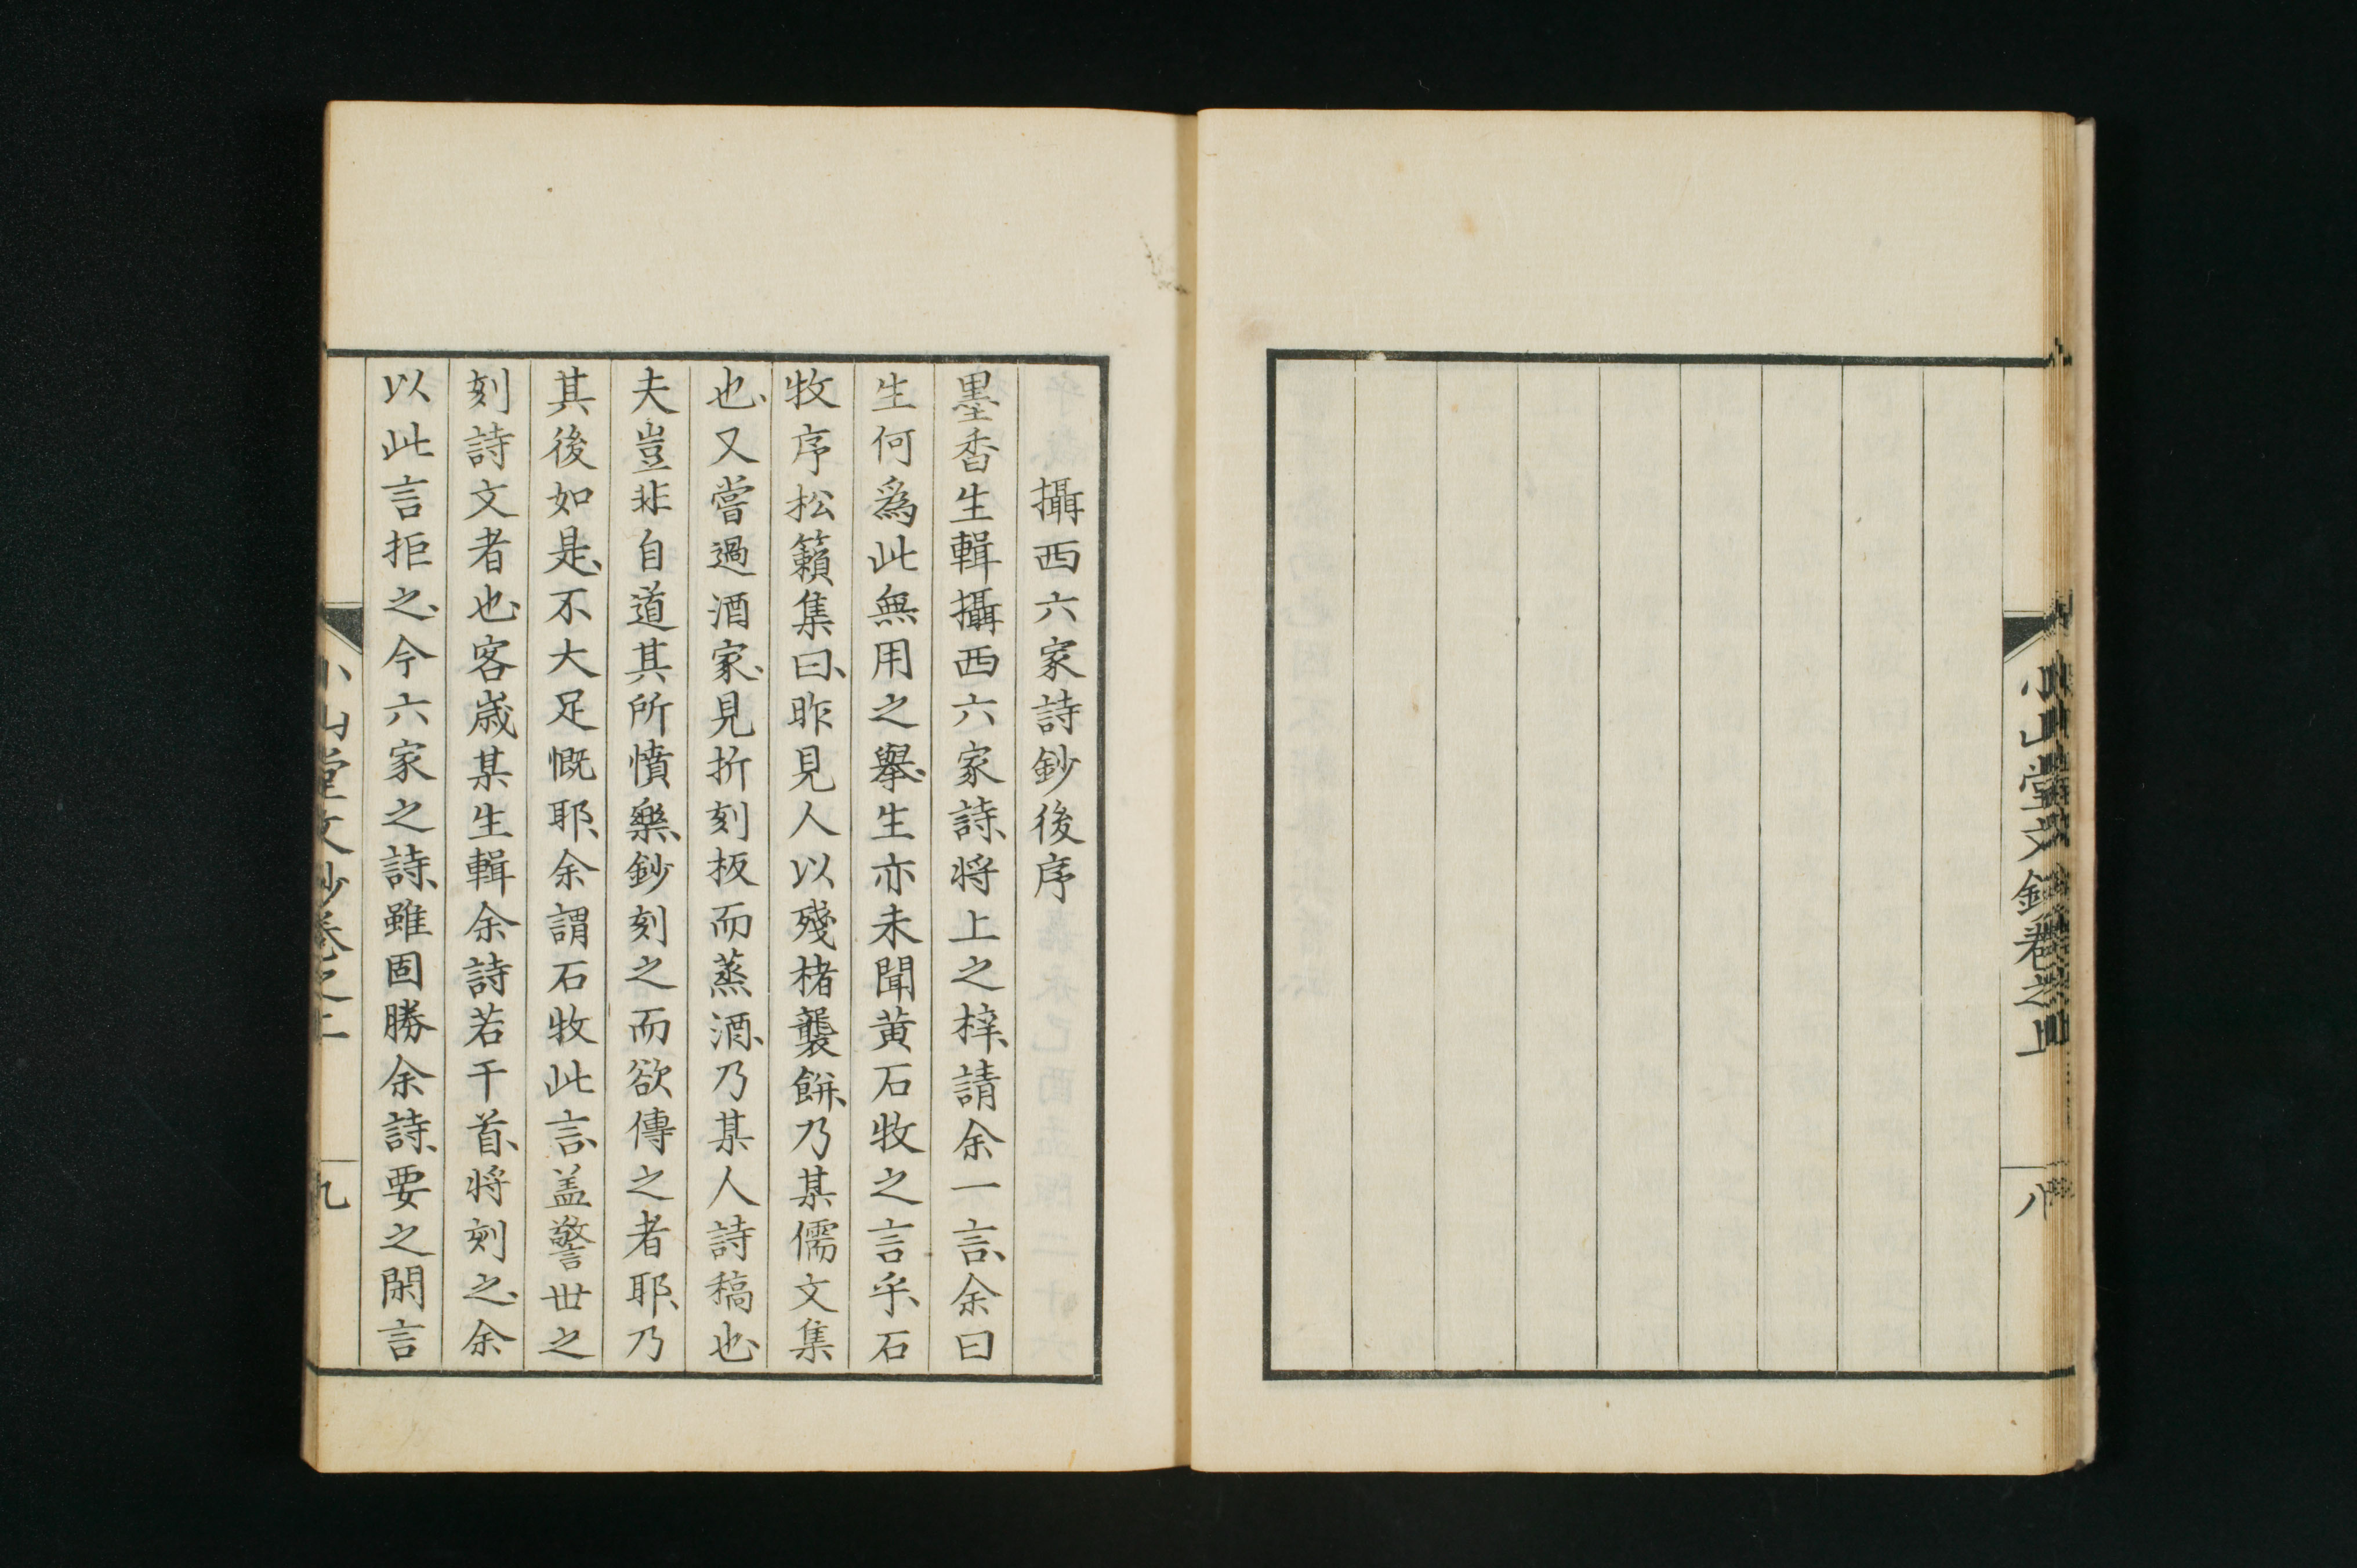 小山堂文鈔卷之上
八
攝西六家詩鈔後序
墨香生輯攝西六家詩、将上之梓、請余一言、余曰
生何爲此無用之擧、生亦未聞黄石牧之言乎、石
牧序松籟集曰、昨見人以殘楮襲餅、乃某儒文集
也、又嘗過酒家、見折刻板而蒸酒、乃某人詩稿也、
夫豈非自道其所憤樂、鈔刻之而欲傳之者耶、乃
其後如是、不大足慨耶、余謂石牧此言、盖警世之
刻詩文者也、客歳某生輯余詩若干首、将刻之、余
以此言拒之、今六家之詩、雖固勝余詩、要之閑言
小山堂文鈔卷之上
九